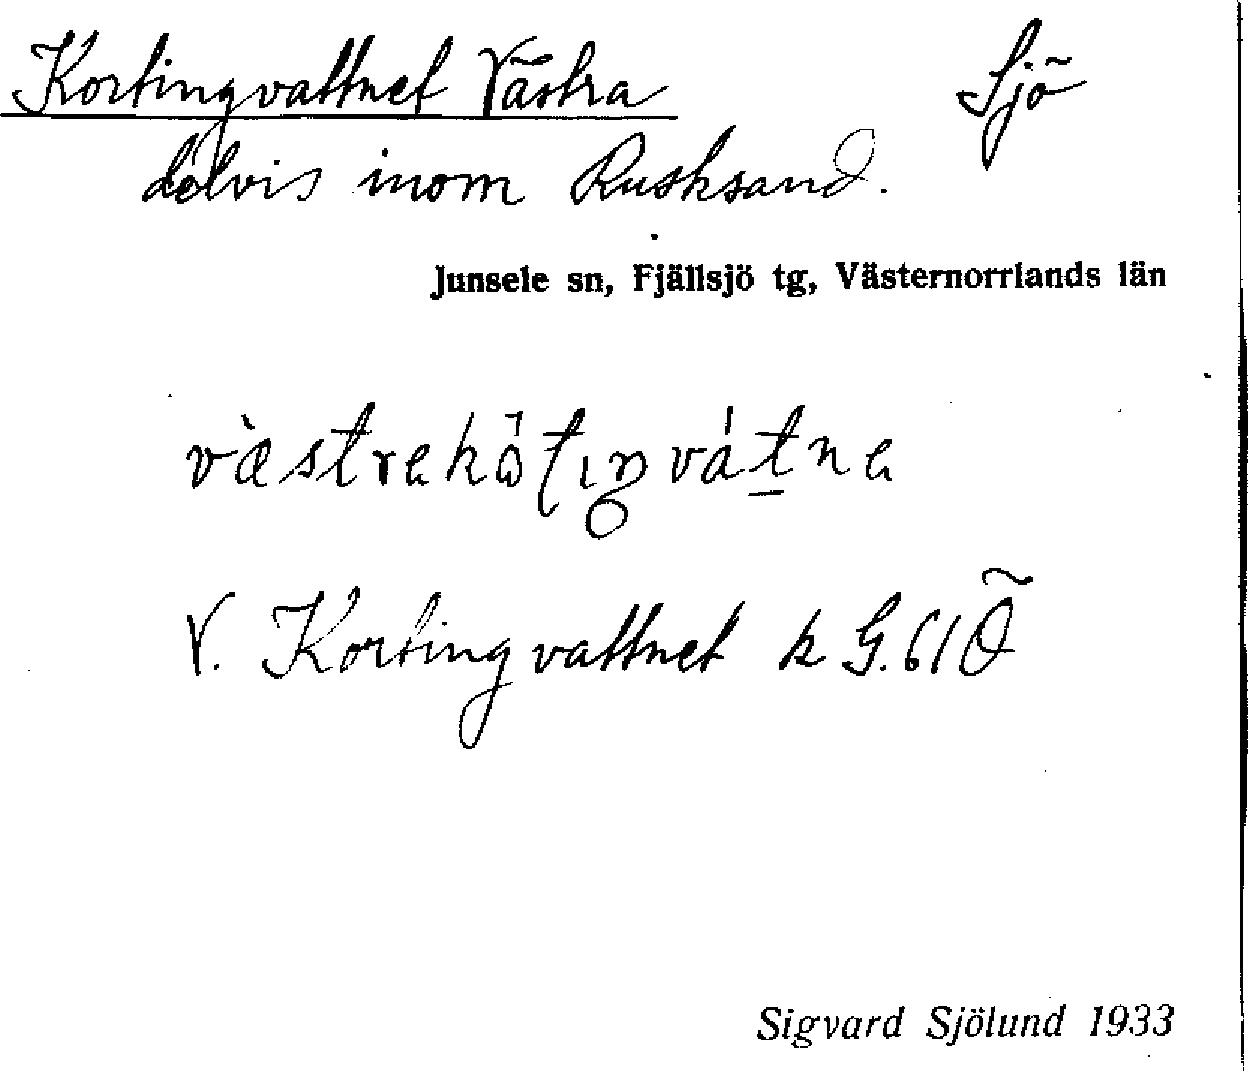 Kortingvattnet Västra Sjö
delvis inom Rusksand.
Junsele sn, Fjällsjö tg, Västernorrlands län
V. Kortingvattnet k G.61 Ö
Sigvard Sjölund 1933